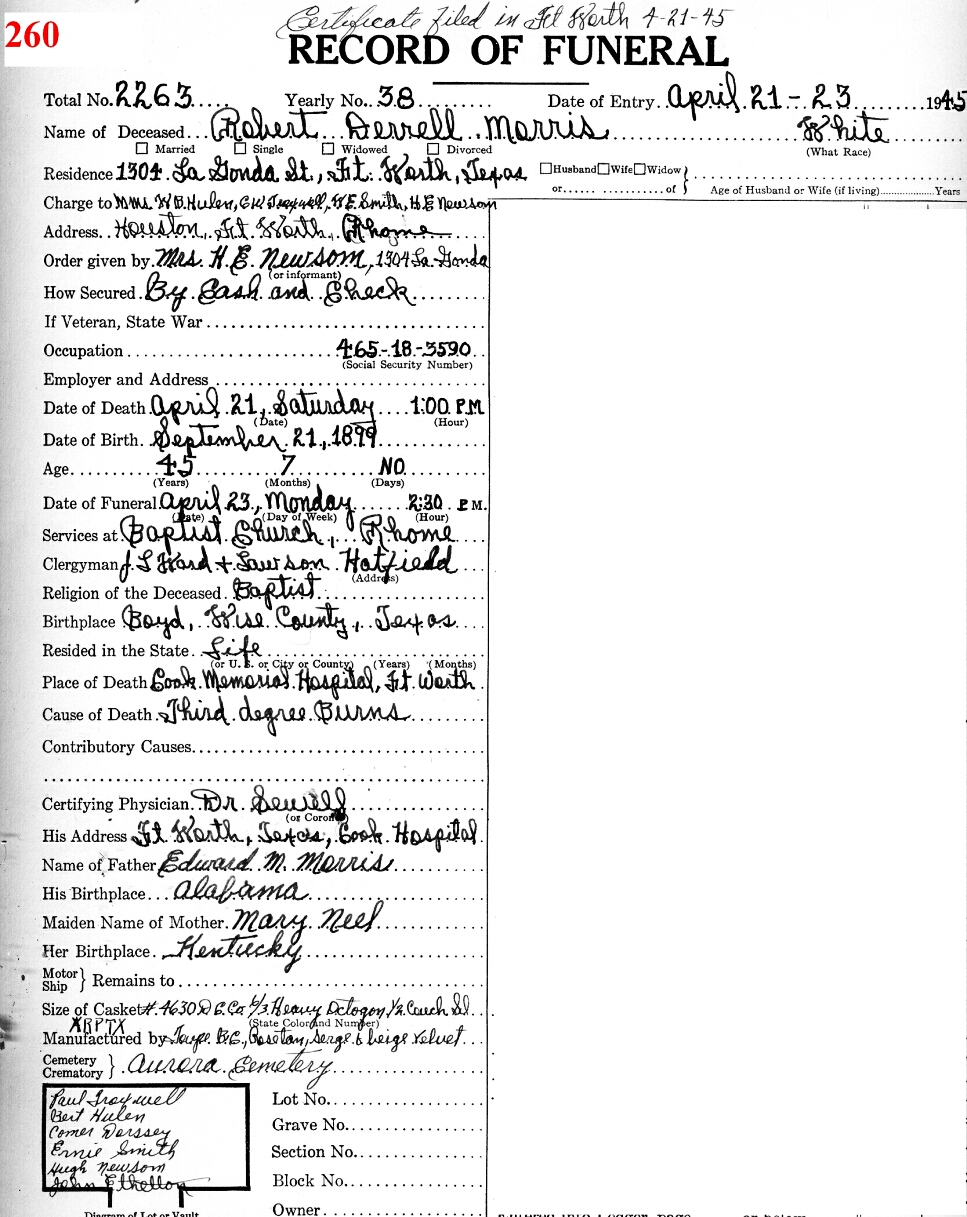 Certificate filed in Ft Worth 4-21-45
260
RECORD OF FUNERAL
Total No. 2263 Yearly No. 38 Date of Entry April 21-23 1945
Name of Deceased Robert Derrell Morris White
Married Single Widowed Divorced (What Race)
Residence 1304 La Gonda St., Ft. Worth, Texas Husband Wife Widow
or of Age of Husband or Wife (if living) Years
Charge to W B Hulen, W.E. Smith, H E Newsom
Address Houston, Ft. Worth, Rhome
Order given by Mrs. H. E. Newsom, 1304 La Gonda
(or informant)
How Secured By Cash and Check
If Veteran, State War
Occupation 465-18-3590
(Social Security Number)
Employer and Address
Date of Death April 21, Saturday 1:00 P.M
(Date) (Hour)
Date of Birth September 21, 1899
Age 45 7 NO
(Years) (Months) (Days)
Date of Funeral April 23, Monday 2:30 P.M.
(Date) (Day of Week) (Hour)
Services at Baptist Church, Rhome
Clergyman J. L Ward + Lawson Hatfield
(Address)
Religion of the Deceased Baptist
Birthplace Boyd, Wise County, Texas
Resided in the State Life
(or U. S. or City or County) (Years) (Months)
Place of Death Cook Memorial Hospital, Ft Worth
Cause of Death Third degree Burns
Contributory Causes
Certifying Physician Dr. Sewell
(or Coroner)
His Address Ft Worth, Texas, Cook Hospital
Name of Father Edward M. Morris
His Birthplace Alabama
Maiden Name of Mother Mary Neel
Her Birthplace Kentucky
Motor
Ship } Remains to
Size of Casket #4630 D C. Co 6/3 Heavy Octogon 1/2 Couch
(State Color and Number)
XRPTX
Manufactured by Taupe B.C., Rosetan, Serge & beige Velvet
Cemetery
Crematory } Aurora Cemetery
Paul
Bert Hulen
Comer Dorssey
Ernie Smith
Hugh Newsom
John
Lot No.
Grave No.
Section No.
Block No.
Owner
Diagram of Lot or Vault